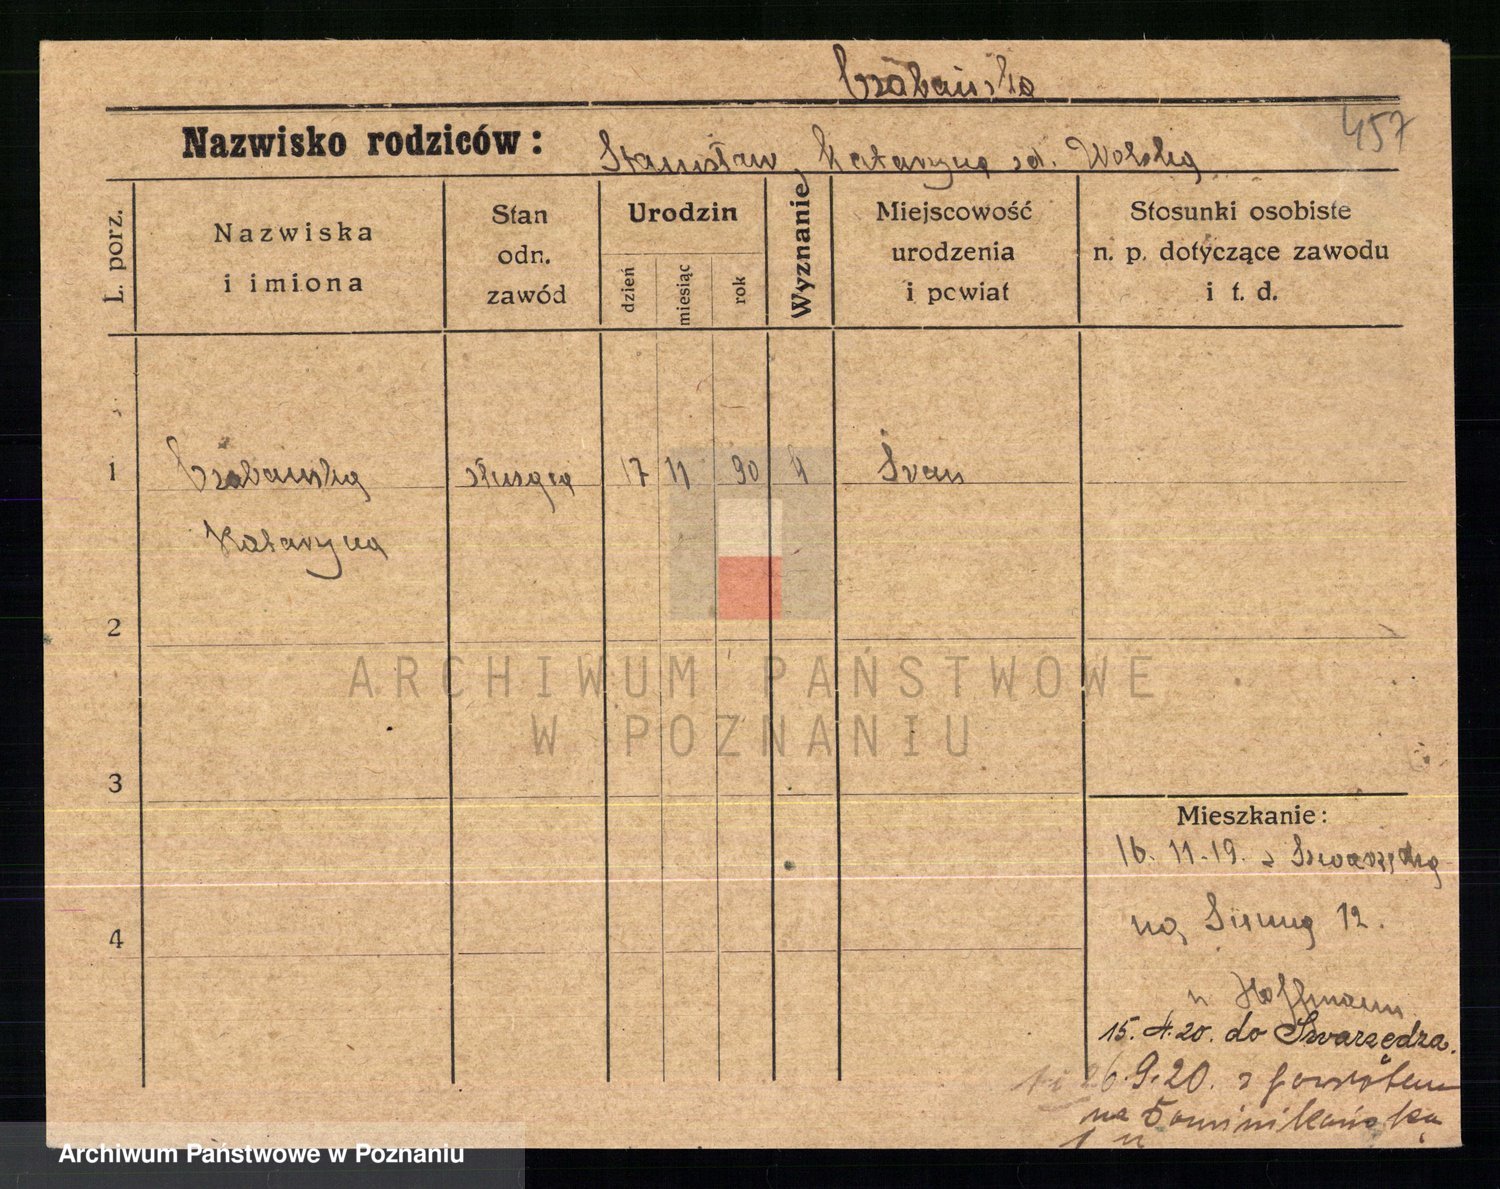 Czabańska
457
Nazwisko rodziców: Stanisław, Katarzyna zd. Wolska
L. porz.
Nazwiska
i imiona
Stan
odn.
zawód
Urodzin
dzień
miesiąc
rok
Wyznanie
Miejscowość
urodzenia
i powiat
Stosunki osobiste
n. p. dotyczące zawodu
i t. d.
1 Czabańska służąca 17 11 90 k
Katarzyna
2
ARCHIWUM PAŃSTWOWE
W POZNANIU
3
Mieszkanie:
16. 11. 19. z Swarzędza
na 12.
4
u Hoffmann
15. 4. 20. do Swarzędza.
26. 9. 20. z powrotem
na Dominikańską
Archiwum Państwowe w Poznaniu